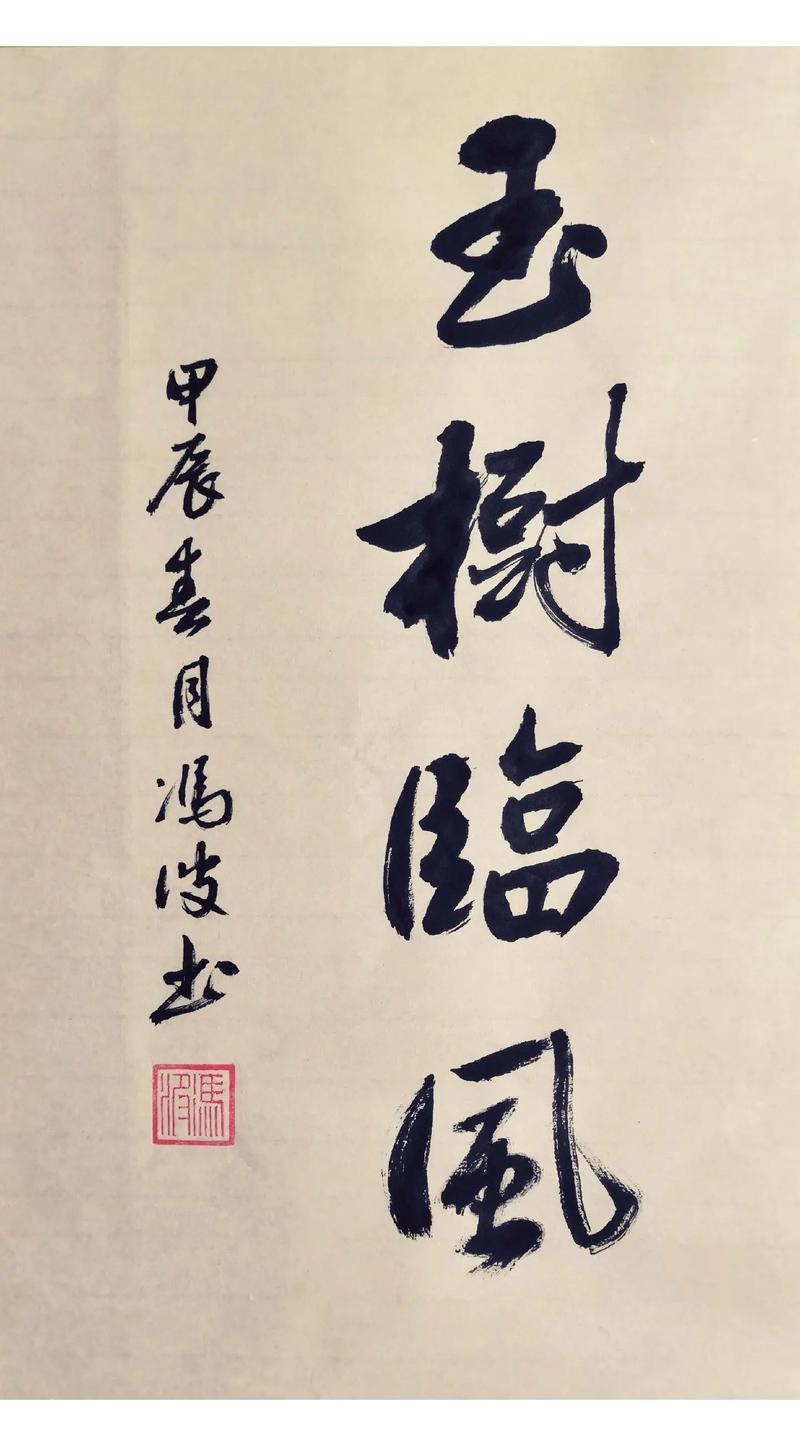 玉樹臨風
甲辰春月馮波书
馮波